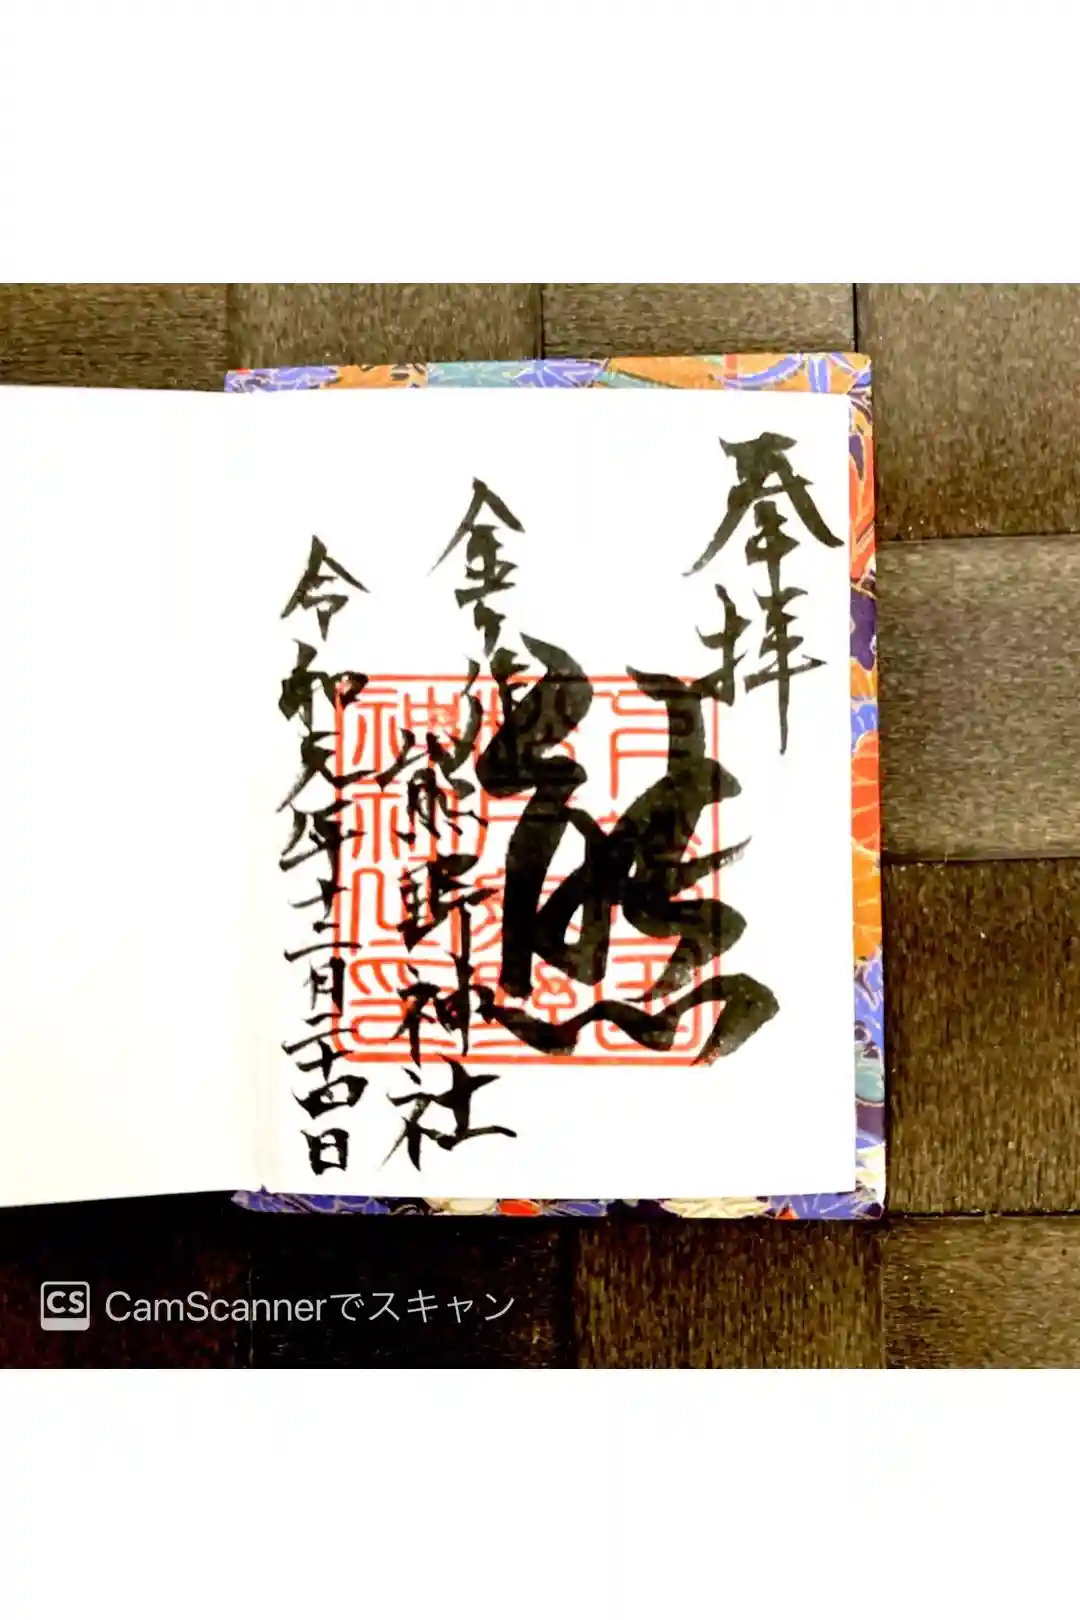 奉拝
熊
金ケ作
熊野神社
令和元年十二月二十四日
神社之印
CS CamScannerでスキャン